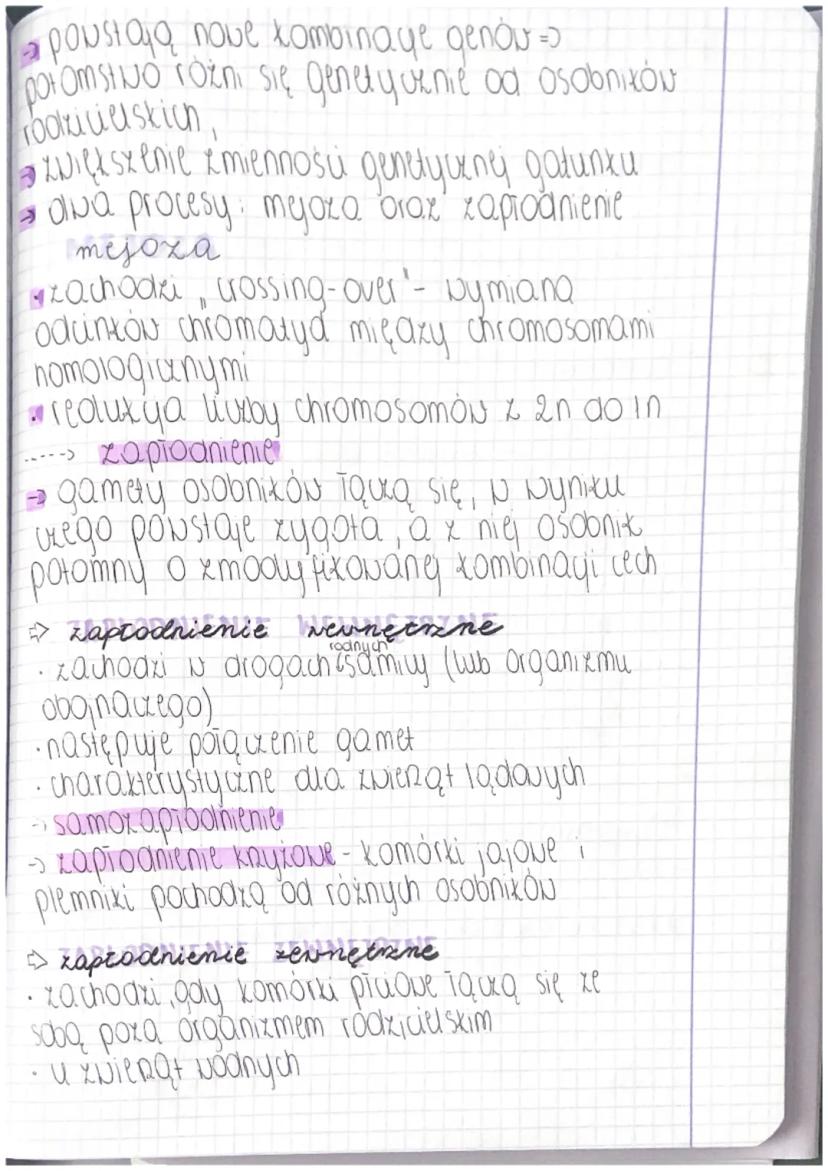 → powstają nowe kombinacje genów =>
potomstwo różni się genetycznie od osobników
rodzicielskich,
→ zwiększenie zmienności genetycznej gatunku
→ dwa procesy: mejoza oraz zapłodnienie
mejoza
• zachodzi „crossing-over" - wymiana
odcinków chromatyd między chromosomami
homologicznymi
• redukcja liczby chromosomów z 2n do 1n
-----> zapłodnienie
→ gamety osobników łączą się, w wyniku
czego powstaje zygota, a z niej osobnik
potomny o zmodyfikowanej kombinacji cech
⇨ zapłodnienie wewnętrzne
• zachodzi w drogach rodnych samicy (lub organizmu
obojnaczego)
• następuje połączenie gamet
• charakterystyczne dla zwierząt lądowych
→ samozapłodnienie
→ zapłodnienie krzyżowe - komórki jajowe i
plemniki pochodzą od różnych osobników
⇨ zapłodnienie zewnętrzne
• zachodzi, gdy komórki płciowe łączą się ze
sobą poza organizmem rodzicielskim
• u zwierząt wodnych